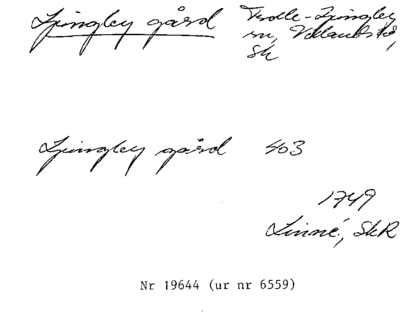 Ljungby gård Trolle-Ljungby
sn, Villands hd,
Sk
Ljungby gård 403
1749
Linné, SkR
Nr 19644 (ur nr 6559)